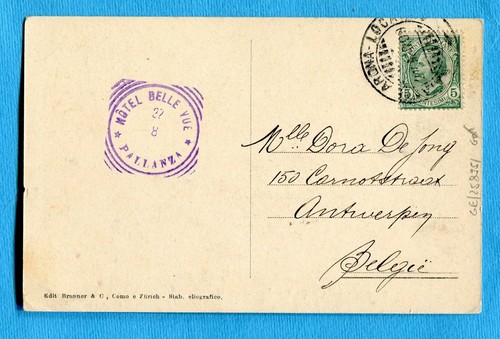 HÔTEL BELLE VUE
27
8
PALLANZA
ARONA-LOCA
5 5
Mlle Dora De Jong
150 Carnotstraat
Antwerpen
België
Edit Brunner & C., Como e Zürich - Stab. eliografico.